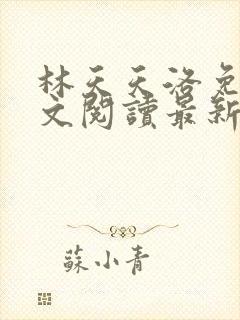 林天天洛免
文閱讀最新
蘇小青